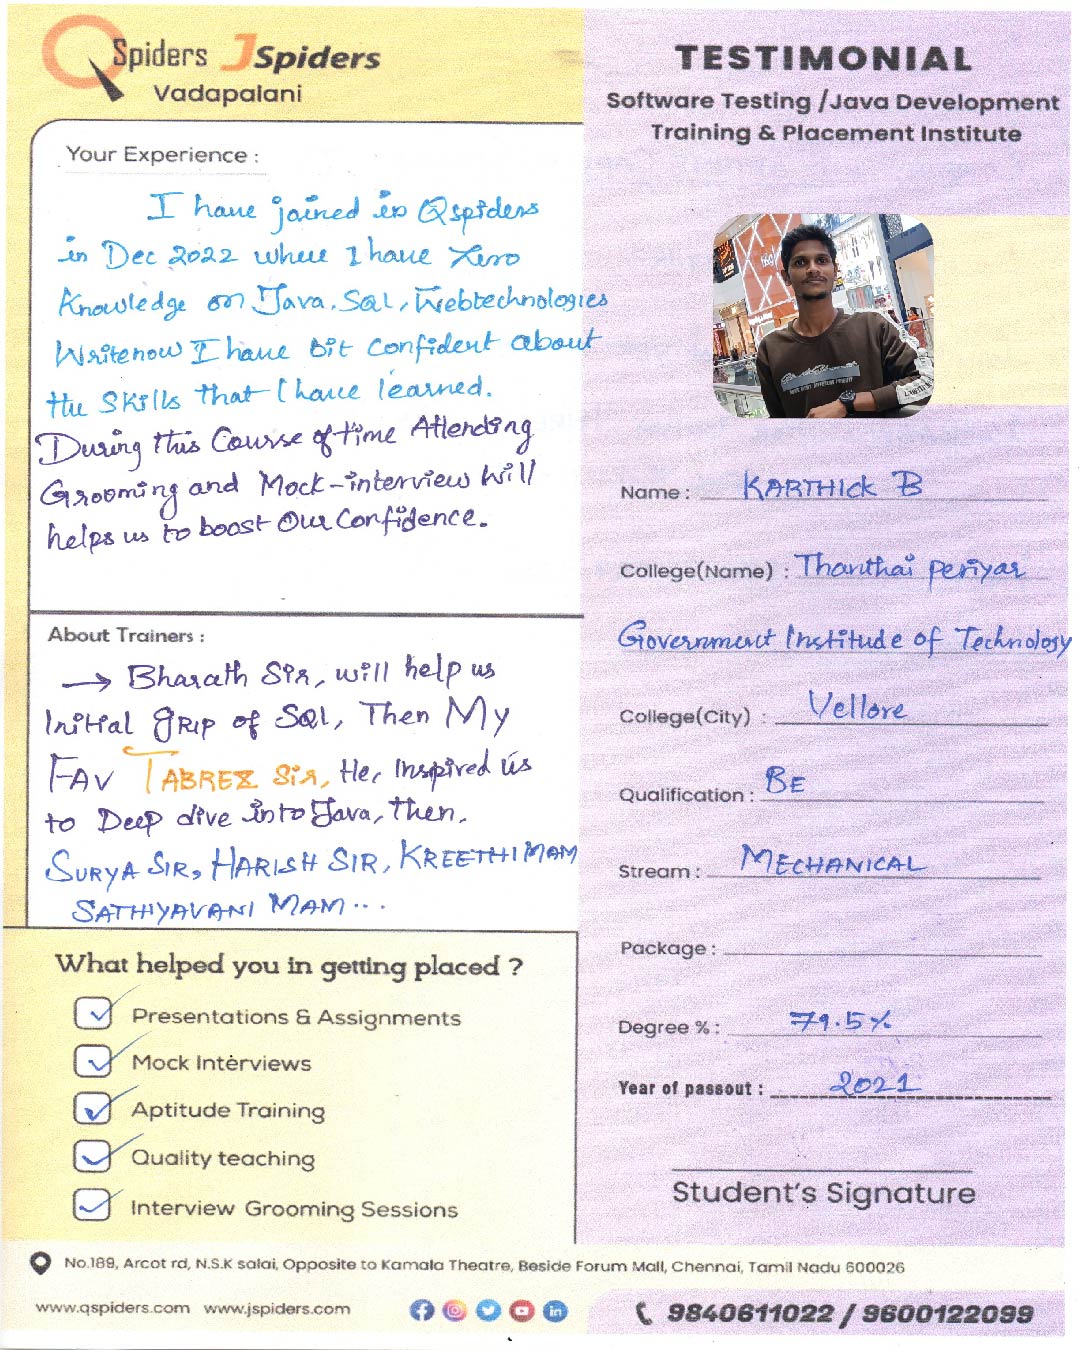 QSpiders JSpiders
Vadapalani
TESTIMONIAL
Software Testing /Java Development
Training & Placement Institute
Your Experience :
I have joined in Qspiders
in Dec 2022 where I have Zero
Knowledge on Java, Sql, Webtechnologies
Writenow I have bit confident about
the Skills that I have learned.
During this Course of time Attending
Grooming and Mock-interview Will
helps us to boost Our Confidence.
About Trainers :
→ Bharath Sir, will help us
Initial grip of SQl, Then My
FAV TABREZ Sir, He, Inspired us
to Deep dive into Java, then,
SURYA SIR, HARISH SIR, KREETHI MAM
SATHIYAVANI MAM...
What helped you in getting placed ?
Presentations & Assignments
Mock Interviews
Aptitude Training
Quality teaching
Interview Grooming Sessions
Name : KARTHICK B
College(Name) : Thanthai periyar
Government Institude of Technology
College(City) : Vellore
Qualification : BE
Stream : MECHANICAL
Package :
Degree % : 79.5%
Year of passout : 2021
Student's Signature
No.189, Arcot rd, N.S.K salai, Opposite to Kamala Theatre, Beside Forum Mall, Chennai, Tamil Nadu 600026
www.qspiders.com www.jspiders.com
9840611022 / 9600122099